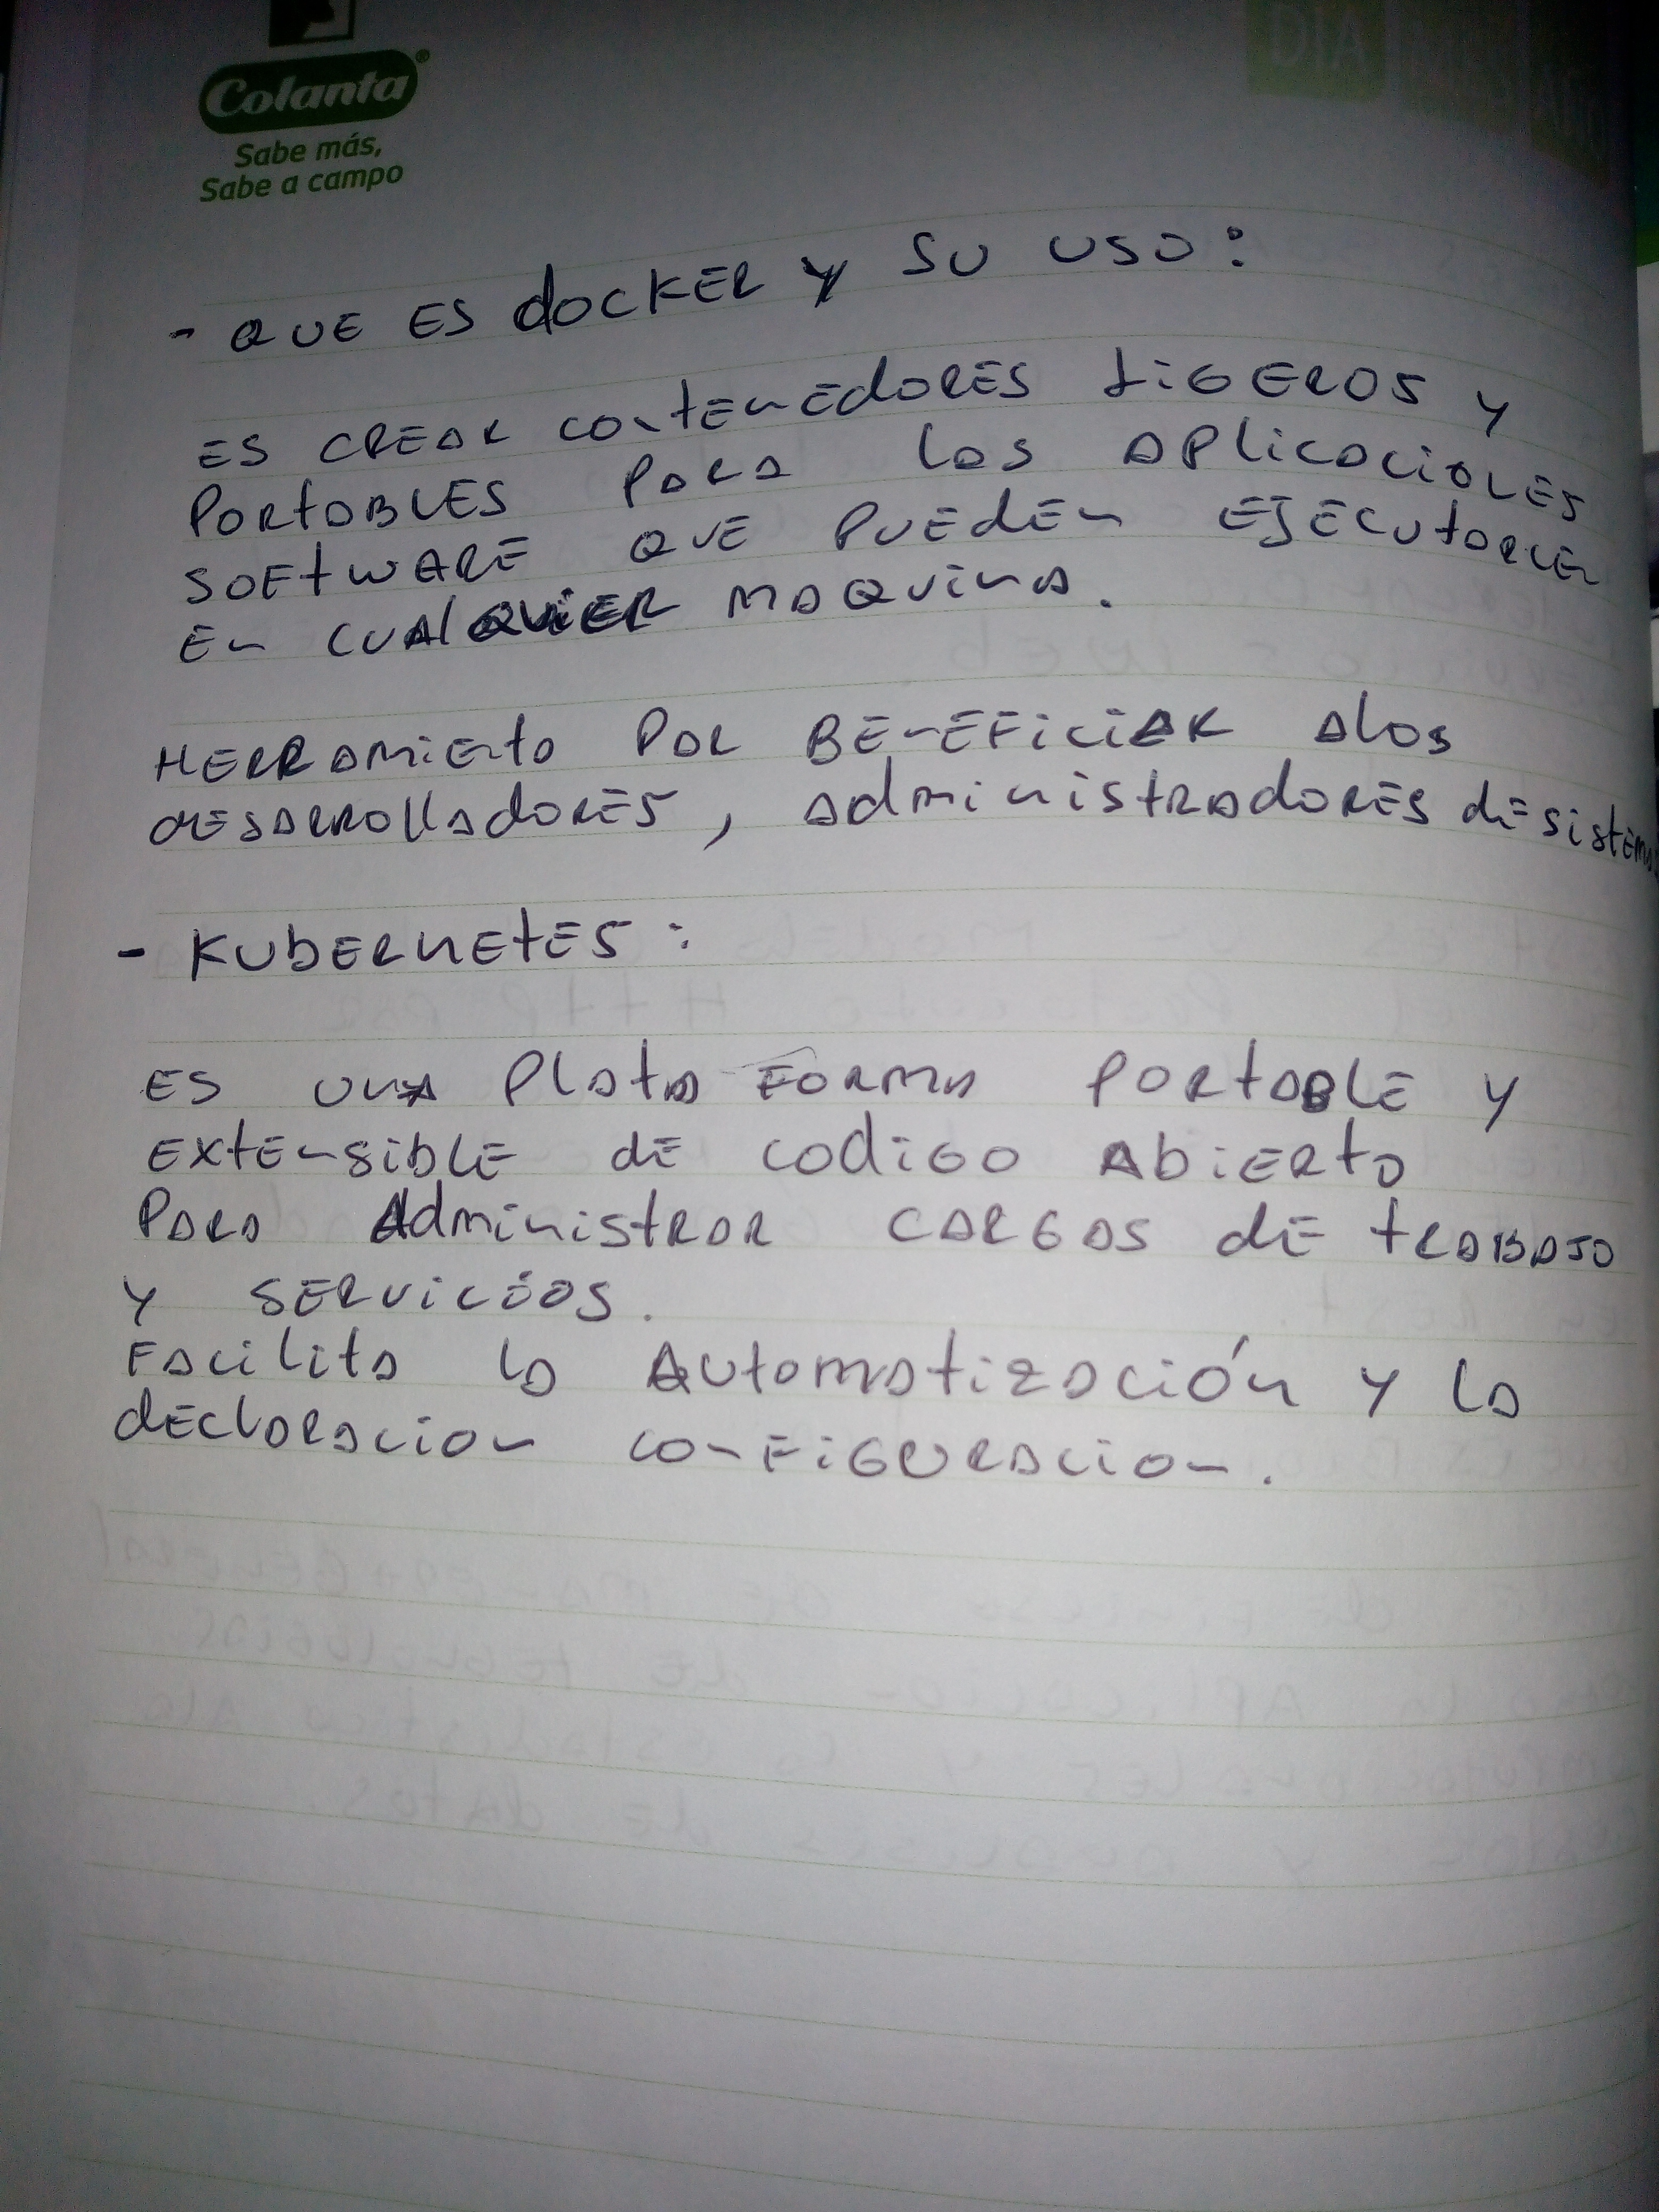 Colanta®
Sabe más,
Sabe a campo
DIA
- QUE ES dockER y SU USO:
ES CREAR contenEdORES LiGEROS y
PORtABLES PARA las APlicacionES
SOFtWARE QUE PUEdEn EJECUtARCEn
En CUAlQUiER MAQUinA.
HERRAMiEntA POR BEnEFiciAR Alos
dESARROllAdORES, AdministRAdORES dE sistEm
- KUbERnEtES:
ES UnA PlAtA FORMA PORtABLE y
EXtEnsiblE dE codiGO AbiERtO
PARA AdministRAR CARGAS dE tRABAJO
y SERViciOS.
FAcilitA lA AUtomAtizAción y lA
dEclARAcion conFiGURAcion.